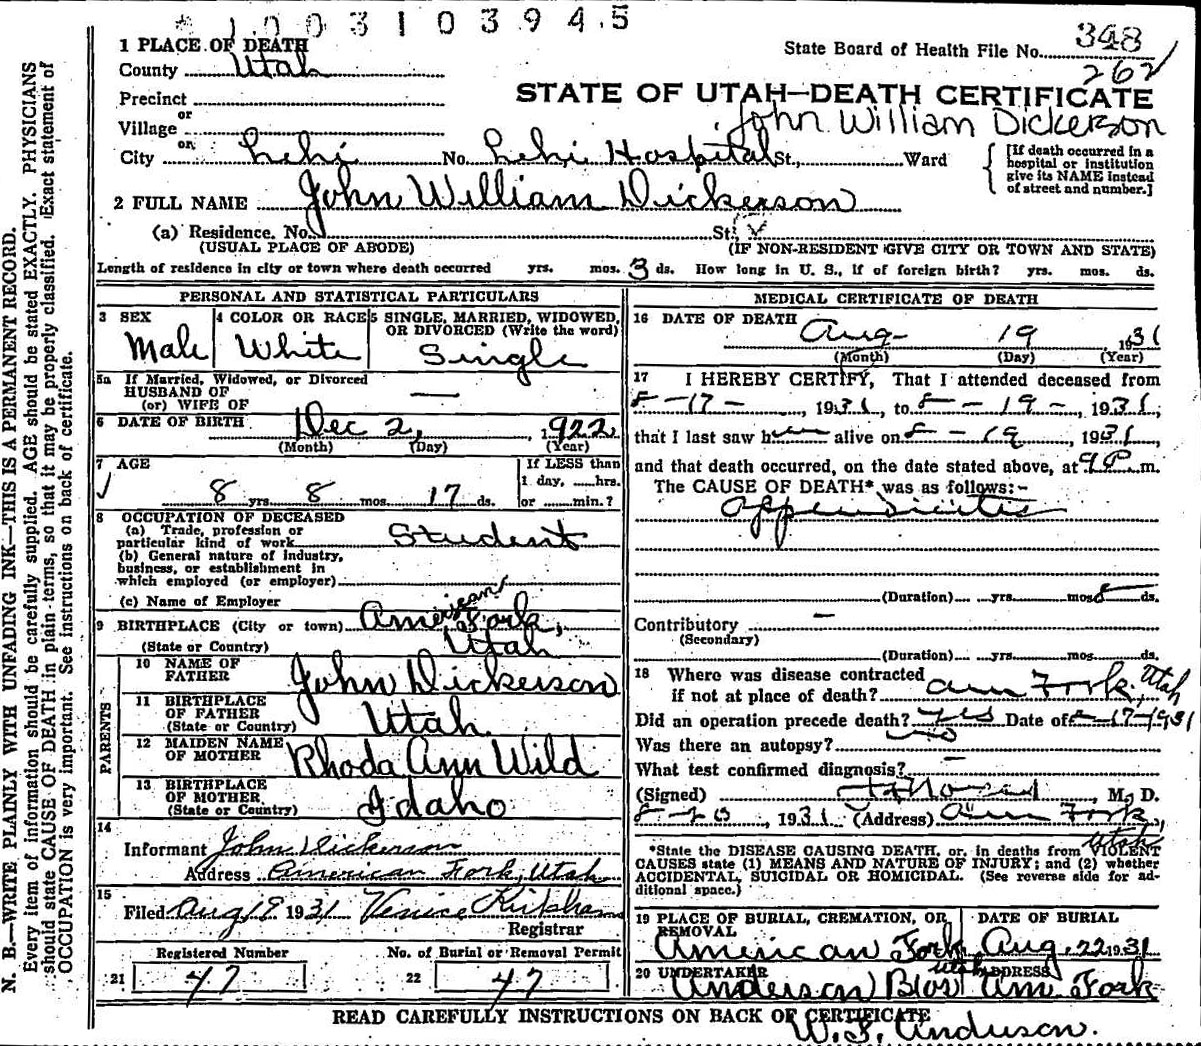 1003103945
1 PLACE OF DEATH
State Board of Health File No. 348
County Utah
262
Precinct
STATE OF UTAH—DEATH CERTIFICATE
or
Village
John William Dickerson
or
City Lehi No. Lehi Hospital St., Ward
[If death occurred in a hospital or institution give its NAME instead of street and number.]
2 FULL NAME John William Dickerson
(a) Residence. No. St.
(USUAL PLACE OF ABODE) (IF NON-RESIDENT GIVE CITY OR TOWN AND STATE)
Length of residence in city or town where death occurred yrs. mos. 3 ds. How long in U. S., if of foreign birth? yrs. mos. ds.
PERSONAL AND STATISTICAL PARTICULARS
3 SEX
Male
4 COLOR OR RACE
White
5 SINGLE, MARRIED, WIDOWED, OR DIVORCED (Write the word)
Single
5a If Married, Widowed, or Divorced
HUSBAND OF
(or) WIFE OF —
6 DATE OF BIRTH Dec 2, 1922
(Month) (Day) (Year)
7 AGE
If LESS than
1 day, ......hrs.
8 yrs. 8 mos. 17 ds. or ......min.?
8 OCCUPATION OF DECEASED
(a) Trade, profession or
particular kind of work Student
(b) General nature of industry,
business, or establishment in
which employed (or employer)
(c) Name of Employer
9 BIRTHPLACE (City or town) American Fork,
(State or Country) Utah
PARENTS
10 NAME OF
FATHER John Dickerson
11 BIRTHPLACE
OF FATHER
(State or Country) Utah
12 MAIDEN NAME
OF MOTHER Rhoda Ann Wild
13 BIRTHPLACE
OF MOTHER
(State or Country) Idaho
14
Informant John Dickerson
Address American Fork, Utah
15
Filed Aug 19 1931 Venice Kirkham
Registrar
Registered Number No. of Burial or Removal Permit
21 47 22 47
MEDICAL CERTIFICATE OF DEATH
16 DATE OF DEATH
Aug 19 1931
(Month) (Day) (Year)
17 I HEREBY CERTIFY, That I attended deceased from
8-17-, 1931, to 8-19-, 1931,
that I last saw him alive on 8-19, 1931,
and that death occurred, on the date stated above, at 9 P. m.
The CAUSE OF DEATH* was as follows:-
appendicitis
(Duration) yrs. mos. ds.
Contributory —
(Secondary)
(Duration) yrs. mos. ds.
18 Where was disease contracted
if not at place of death? Am Fork, Utah
Did an operation precede death? yes Date of 8-17-1931
Was there an autopsy? no
What test confirmed diagnosis? —
(Signed) M. D.
1931 (Address) Am Fork,
Utah
*State the DISEASE CAUSING DEATH, or, in deaths from VIOLENT
CAUSES state (1) MEANS AND NATURE OF INJURY; and (2) whether
ACCIDENTAL, SUICIDAL OR HOMICIDAL. (See reverse side for ad-
ditional space.)
19 PLACE OF BURIAL, CREMATION, OR
REMOVAL
American Fork
Utah
DATE OF BURIAL
Aug. 22 1931
20 UNDERTAKER ADDRESS
Anderson Bros Am. Fork
READ CAREFULLY INSTRUCTIONS ON BACK OF CERTIFICATE
W. F. Anderson.
N. B.—WRITE PLAINLY WITH UNFADING INK—THIS IS A PERMANENT RECORD.
Every item of information should be carefully supplied. AGE should be stated EXACTLY. PHYSICIANS
should state CAUSE OF DEATH in plain terms, so that it may be properly classified. Exact statement of
OCCUPATION is very important. See instructions on back of certificate.